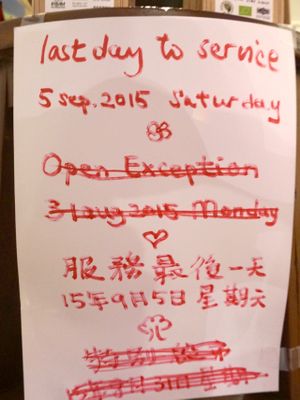 last day to service
5 sep. 2015 Saturday
Open Exception
31 aug 2015 Monday
服務最後一天
15年9月5日星期六